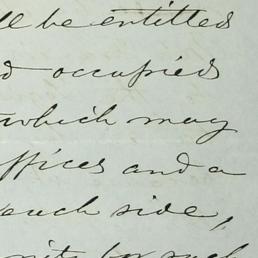 ll be entitled
d occupied
which may
offices and a
each side,
for such